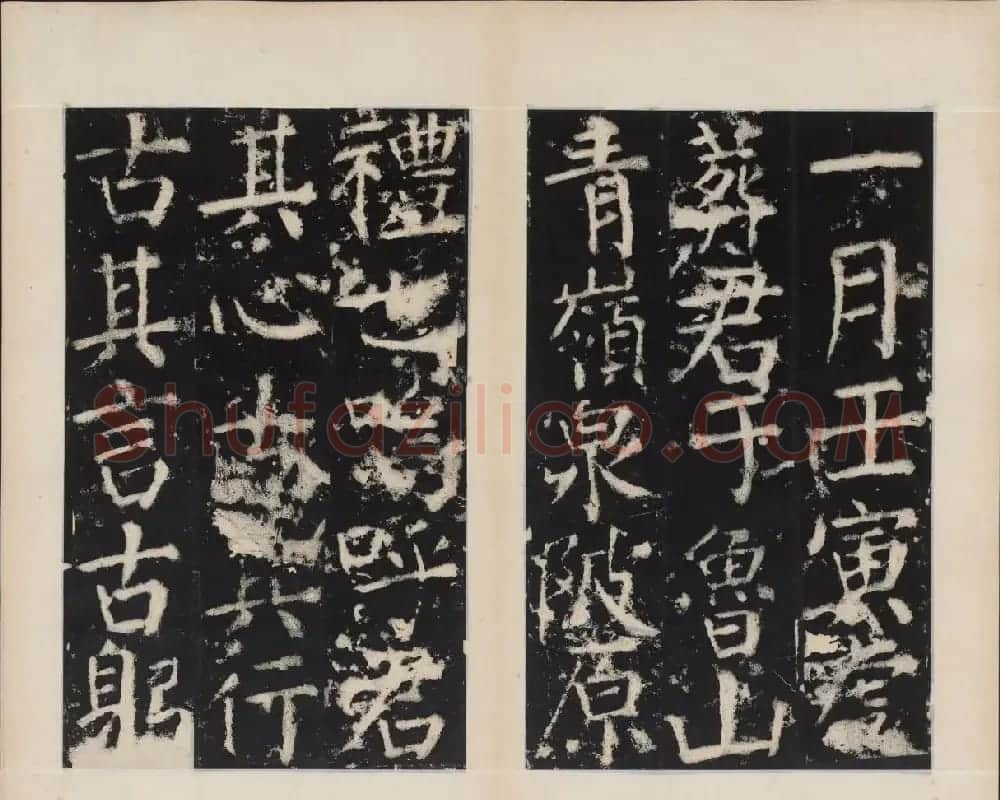 一月壬寅虔
葬君于魯山
青嶺泉陂原
禮也嗚呼君
其心古其行
古其言古躳
Shufaziliao.COM